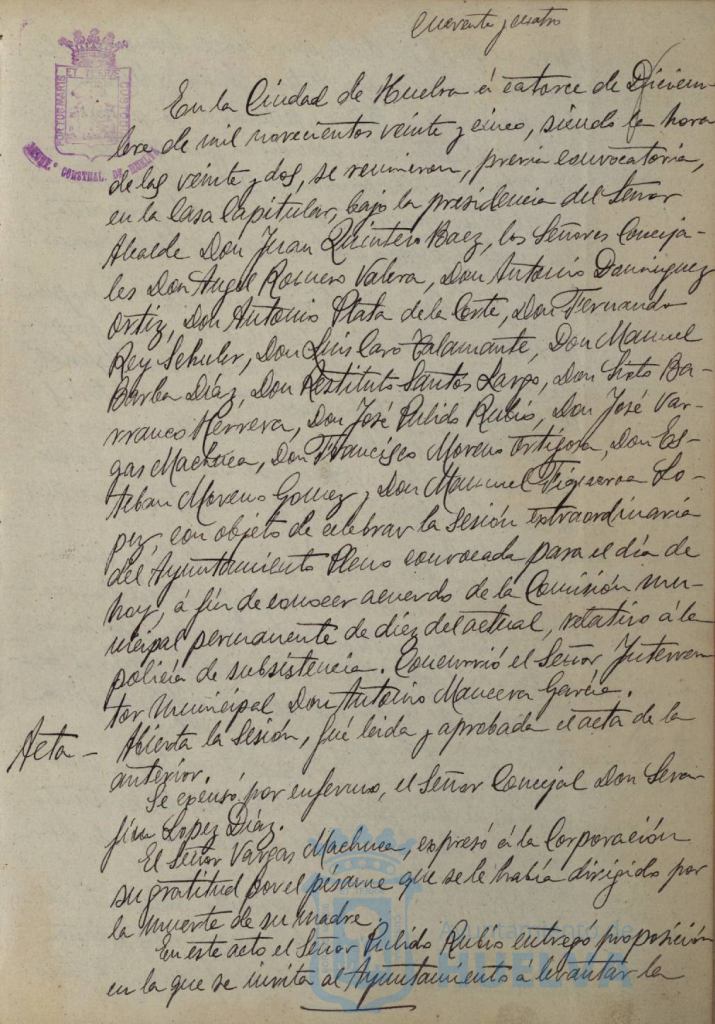 Cuarenta y cuatro
PORTUS MARIS ET TERRE CUSTODIA
AYUNT.º CONSTNAL. DE HUELVA
En la Ciudad de Huelva á catorce de Diciem-
bre de mil novecientos veinte y cinco, siendo la hora
de las veinte y dos, se reunieron, previa convocatoria,
en la Casa Capitular, bajo la presidencia del Señor
Alcalde Don Juan Quintero Baez, los Señores Conceja-
les Don Angel Romero Valera, Don Antonio Dominguez
Ortiz, Don Antonio Plata de la Corte, Don Fernando
Rey Schuler, Don Luis Caro Talamante, Don Manuel
Barba Díaz, Don Restituto Santos Largo, Don Sixto Ba-
rranco Herrera, Don José Pulido Rubio, Don José Var-
gas Machuca, Don Francisco Moreno Ortigosa, Don Es-
teban Moreno Gomez y Don Manuel Figueroa Lo-
pez, con objeto de celebrar la sesión extraordinaria
del Ayuntamiento Pleno convocada para el día de
hoy, á fín de conocer acuerdo de la Comisión mu-
nicipal permanente de diez del actual, relativo á la
policía de subsistencia. Concurrió el Señor Interven
tor municipal Don Antonio Manceva García.
Acta - Abierta la Sesión, fué leida y aprobada el acta de la
anterior.
Se excusó, por enfermo, el Señor Concejal Don Sera
fín Lopez Díaz.
El Señor Vargas Machuca, expresó á la Corporación
su gratitud por el pésame que se le había dirigido por
la muerte de su madre.
En este acto el Señor Pulido Rubio entregó proposición
en la que se invita al Ayuntamiento a levantar la
Ayuntamiento de
HUELVA